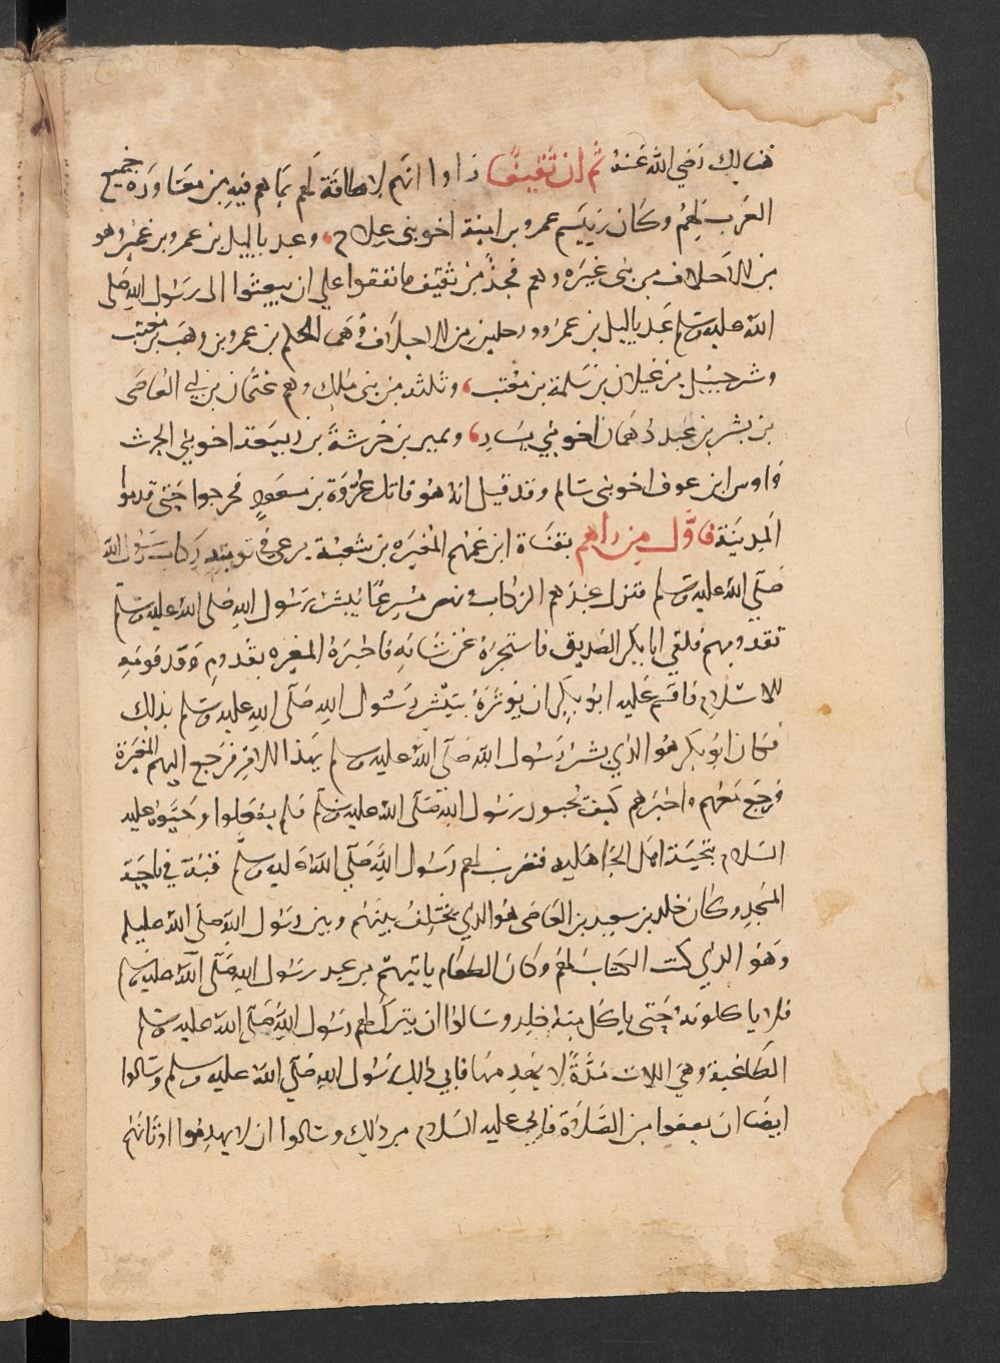 هنالك رضي الله عنه ثم ان ثقيفا راوا انهم لا طاقة لهم بما هم فيه من مغاورة جميع
العرب لهم وكان رئيسم عمرو بن امية اخو بني علاج، وعبد ياليل بن عمرو بن عمير وهو
من الاحلاف من بني غيره وهم فخذ من ثقيف فاتفقوا علي ان يبعثوا الى رسول الله صلى
الله عليه وسلم عبد ياليل بن عمرو ورجلين من الاحلاف وهما الحكم بن عمرو بن وهب بن معتب
وشرحبيل بن غيلان بن سلمة بن معتب، وثلثه من بني ملك وهم عثمان بن ابي العاصى
بن بشر بن عبد دهمان اخو بني يسار، ونمير بن خرشة بن ربيعة اخو بني الحرث
واوس ابن عوف اخو بني سالم وقد قيل انه هو قاتل عروة بن مسعود فخرجوا حتى قدموا
المدينة فاول من راهم بقناة ابن عمهم المغيره بن شعبة يرعي في نوبته ركاب رسول الله
صلي الله عليه وسلم فنزل عندهم الركاب ونهض مسرعا ليبشر رسول الله صلى الله عليه وسلم
بقدومهم فلقي ابا بكر الصديق فاستخبره عن شانه فاخبره المغيره بقدوم وفد قومه
للاسلام فاقسم عليه ابو بكر ان يوثره بتبشير رسول الله صلى الله عليه وسلم بذلك
فكان ابو بكر هو الذي بشر رسول الله صلى الله عليه وسلم بهذا الامر فرجع اليهم المغيرة
فرجع معهم واخبرهم كيف يحيون رسول الله صلى الله عليه وسلم فلم يفعلوا وحيوه عليه
السلام بتحية اهل الجاهليه فضرب لهم رسول الله صلى الله عليه وسلم قبة في ناحية
المسجد وكان خلد بن سعيد بن العاصى هو الذي يختلف بينهم وبين رسول الله صلى الله عليه وسلم
وهو الذي كتب الكتاب لهم وكان الطعام ياتيهم من عند رسول الله صلى الله عليه وسلم
فلا ياكلونه حتى ياكل منه خلد وسالوا ان يترك لهم رسول الله صلى الله عليه وسلم
الطاغية وهي اللات مدة لا يهدمها فابي ذلك رسول الله صلي الله عليه وسلم وسالوا
ايضا ان يعفوا من الصلاة فابى عليه السلام من ذلك وسالوا ان لا يهدموا اوثانهم